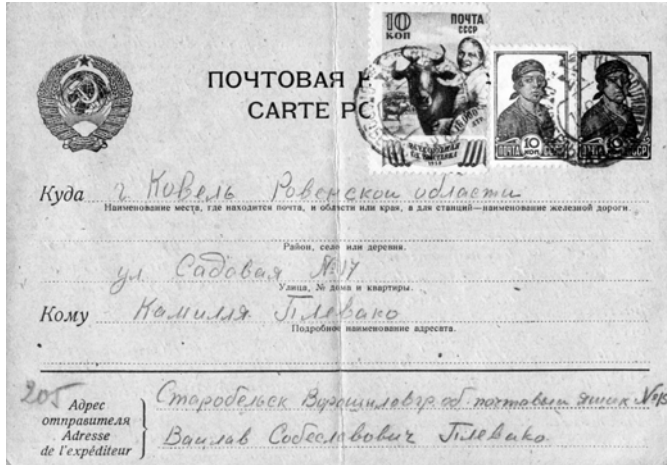 10 КОП ПОЧТА СССР
ПОЧТОВАЯ
CARTE
ПОЧТА 10 КОП СССР
ПОЧТА 10 КОП СССР
Куда г. Ковель Ровенской области
Наименование места, где находится почта, и области или края, а для станций—наименование железной дороги
Район, село или деревня.
ул Садовая №17
Улица, № дома и квартиры.
Кому Камилля Плевако
Подробное наименование адресата.
205
Адрес отправителя
Adresse de l'expéditeur
Старобельск Ворошиловгр. об. почтовый ящик
Вацлав Собеславович Плевако